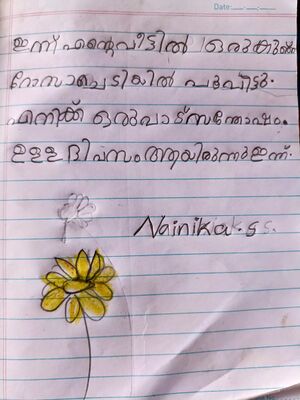 Date:
ഇന്ന് എന്റെ വീട്ടിൽ ഒരു കുഞ്ഞ്
റോസാച്ചെടിയിൽ പൂവിട്ടു.
എനിക്ക് ഒരുപാട് സന്തോഷം
ഉള്ള ദിവസം ആയിരുന്നു ഇന്ന്.
Nainika.S S.